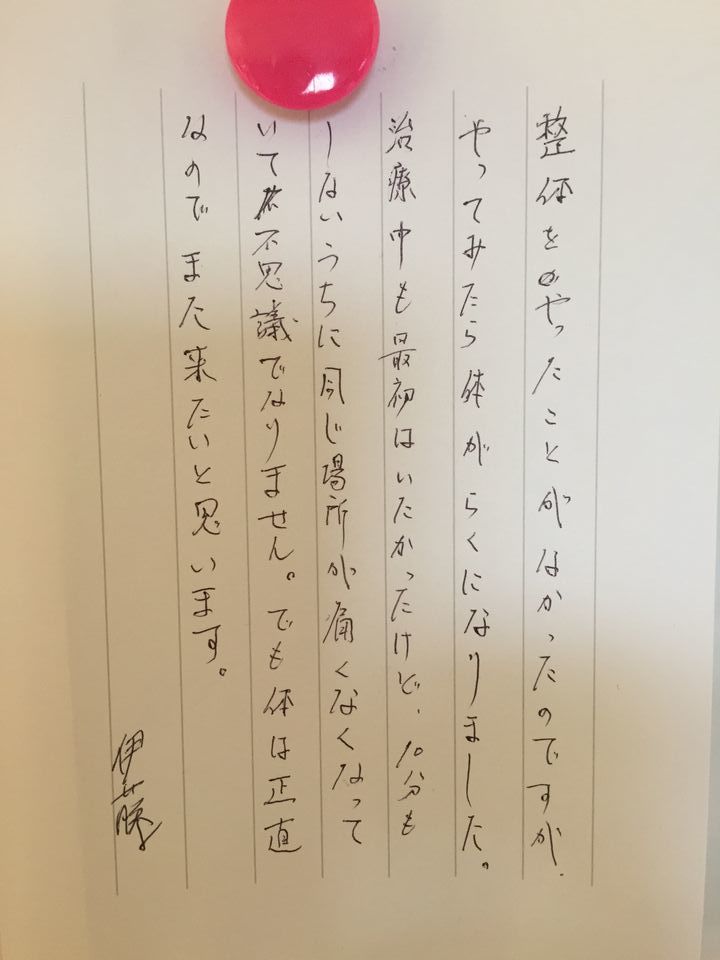 整体をやったことがなかったのですが、
やってみたら体がらくになりました。
治療中も最初はいたかったけど、10分も
しないうちに同じ場所が痛くなくなって
いて不思議でなりません。でも体は正直
なのでまた来たいと思います。
伊藤